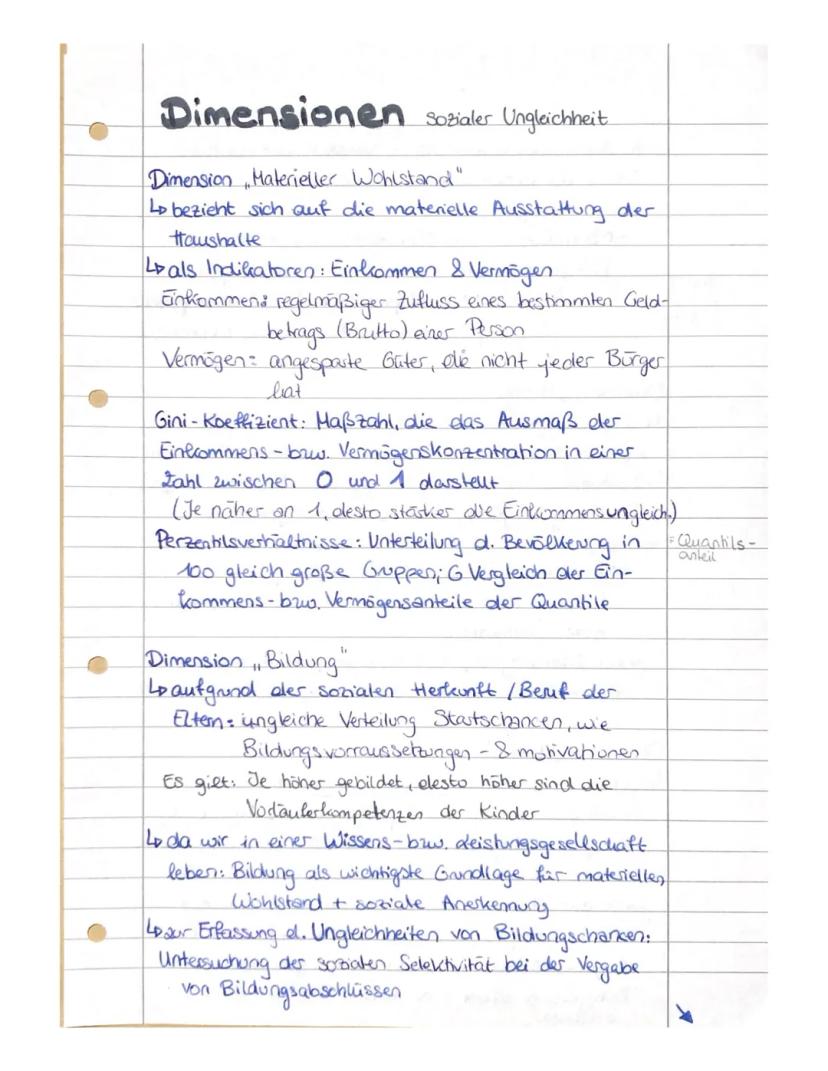 Dimensionen sozialer Ungleichheit
Dimension „Materieller Wohlstand"
↳ bezieht sich auf die materielle Ausstattung der
Haushalte
↳ als Indikatoren: Einkommen & Vermögen
Einkommen: regelmäßiger Zufluss eines bestimmten Geld-
betrags (Brutto) einer Person
Vermögen: angesparte Güter, die nicht jeder Bürger
hat
Gini-Koeffizient: Maßzahl, die das Ausmaß der
Einkommens- bzw. Vermögenskonzentration in einer
Zahl zwischen 0 und 1 darstellt
(Je näher an 1, desto stärker die Einkommensungleich.)
Perzentilsverhältnisse: Unterteilung d. Bevölkerung in
= Quantils-
anteil
100 gleich große Gruppen; G Vergleich der Ein-
kommens- bzw. Vermögensanteile der Quantile
Dimension „Bildung"
↳ aufgrund der sozialen Herkunft / Beruf der
Eltern: ungleiche Verteilung Startschancen, wie
Bildungsvorraussetzungen - & motivationen
Es gilt: Je höher gebildet, desto höher sind die
Vorläuferkompetenzen der Kinder
↳ da wir in einer Wissens- bzw. Leistungsgesellschaft
leben: Bildung als wichtigste Grundlage für materiellen
Wohlstand + soziale Anerkennung
↳ zur Erfassung d. Ungleichheiten von Bildungschancen:
Untersuchung der sozialen Selektivität bei der Vergabe
von Bildungsabschlüssen